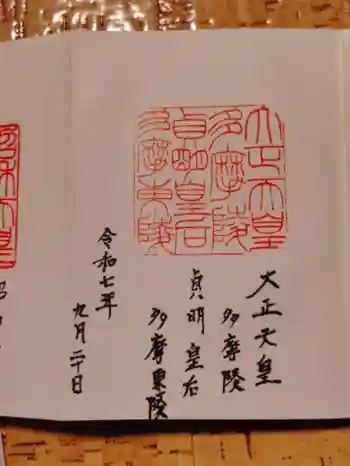 大正天皇
多摩陵
貞明皇后
多摩東陵
大正天皇
多摩陵
貞明皇后
多摩東陵
令和七年
九月二十日